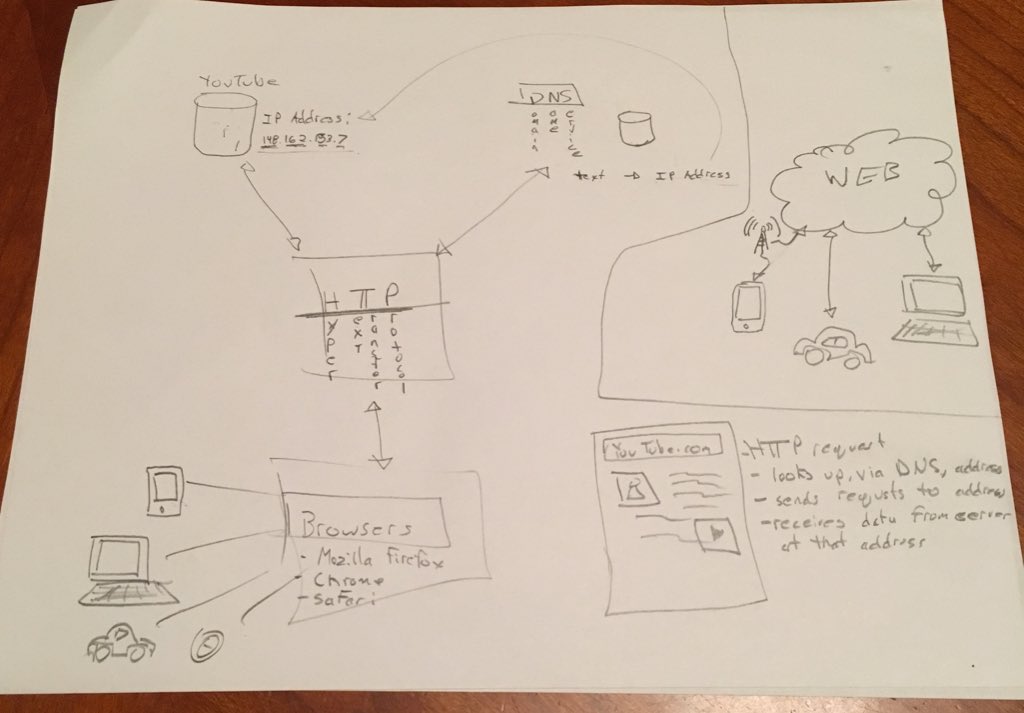 YouTube
IP Address:
148.162.83.7
DNS
omain
ame
ervice
text → IP Address
WEB
HTTP
yper
ext
ransfer
rotocol
Browsers
- Mozilla Firefox
- Chrome
- Safari
YouTube.com
- HTTP request
- looks up, via DNS, address
- sends requsts to address
- receives data from server
at that address